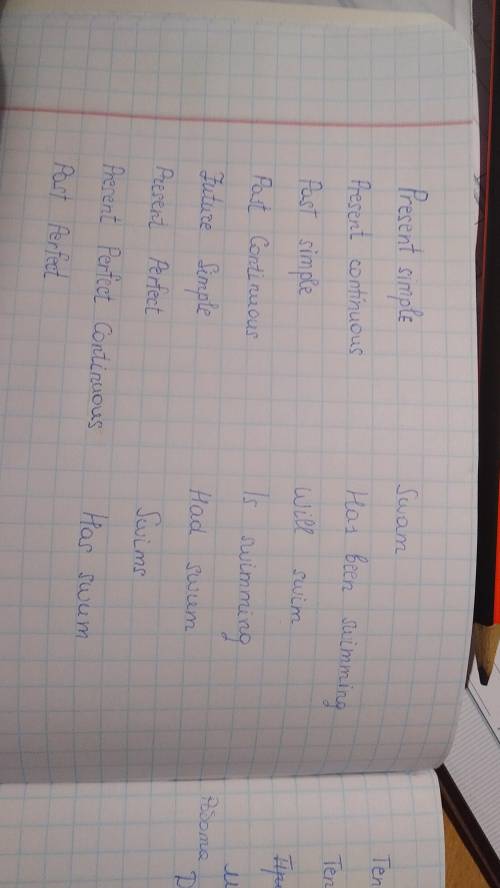 Present simple
Present continuous
Past simple
Past Continuous
Future Simple
Present Perfect
Present Perfect Continuous
Past Perfect
Swam
Has been swimming
Will swim
Is swimming
Had swum
Swims
Has swum
Теп
Теп
При
М
Робота